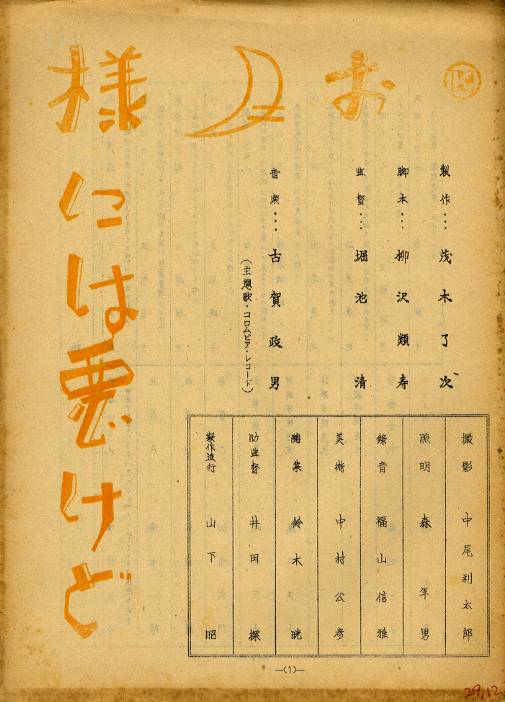 お月様には悪けど
製作…茂木了次
脚本…柳沢類寿
監督…堀池清
音楽…古賀政男
(主題歌・コロムビア・レコード)
撮影 中尾利太郎
照明 森年男
録音 福山信雅
美術 中村公彦
編集 鈴木晄
助監督 井田探
製作進行 山下昭
—(1)—
29,12